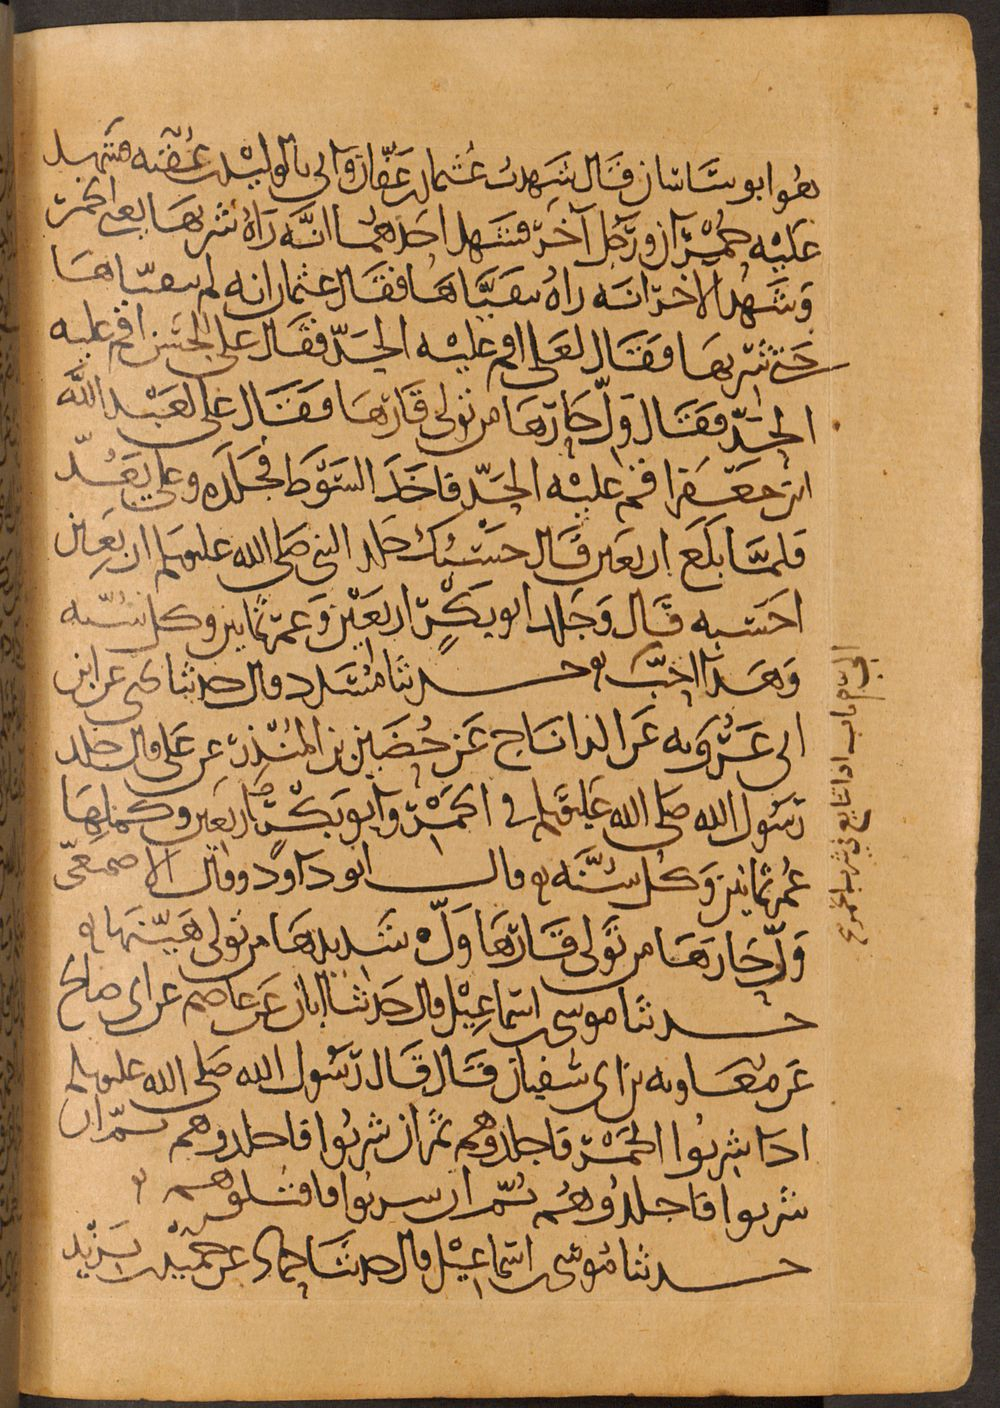 هو ابو ساسان قال شهدت عثمان بن عفان واتي بالوليد بن عقبة فشهد
عليه حمران ورجل آخر فشهد احدهما انه رآه شربها يعني الخمر
وشهد الاخر انه رآه يتقياها فقال عثمان انه لم يتقياها
حتى شربها فقال لعلي اقم عليه الحد فقال علي للحسن اقم عليه
الحد فقال ول حارها من تولى قارها فقال علي لعبد الله
ابن جعفر اقم عليه الحد فاخذ السوط فجلده وعلي يعد
فلما بلغ اربعين قال حسبك جلد النبي صلى الله عليه وسلم اربعين
احسبه قال وجلد ابو بكر اربعين وعمر ثمانين وكل سنة
وهذا احب حدثنا مسدد قال حدثنا يحيى عن ابن
ابي عروبة عن الداناج عن حضين بن المنذر عن علي قال جلد
رسول الله صلى الله عليه وسلم في الخمر وابو بكر اربعين وكملها
عمر ثمانين وكل سنة قال ابو داود وقال الاصمعي
ول حارها من تولى قارها ول شديدها من تولى هينها
حدثنا موسى بن اسماعيل قال حدثنا ابان عن عاصم عن ابي صالح
عن معاوية بن ابي سفيان قال قال رسول الله صلى الله عليه وسلم
اذا شربوا الخمر فاجلدوهم ثم ان شربوا فاجلدوهم ثم ان
شربوا فاجلدوهم ثم ان شربوا فاقتلوهم
حدثنا موسى بن اسماعيل قال حدثنا حماد عن حميد بن يزيد
باب اذا تتايع في شرب الخمر